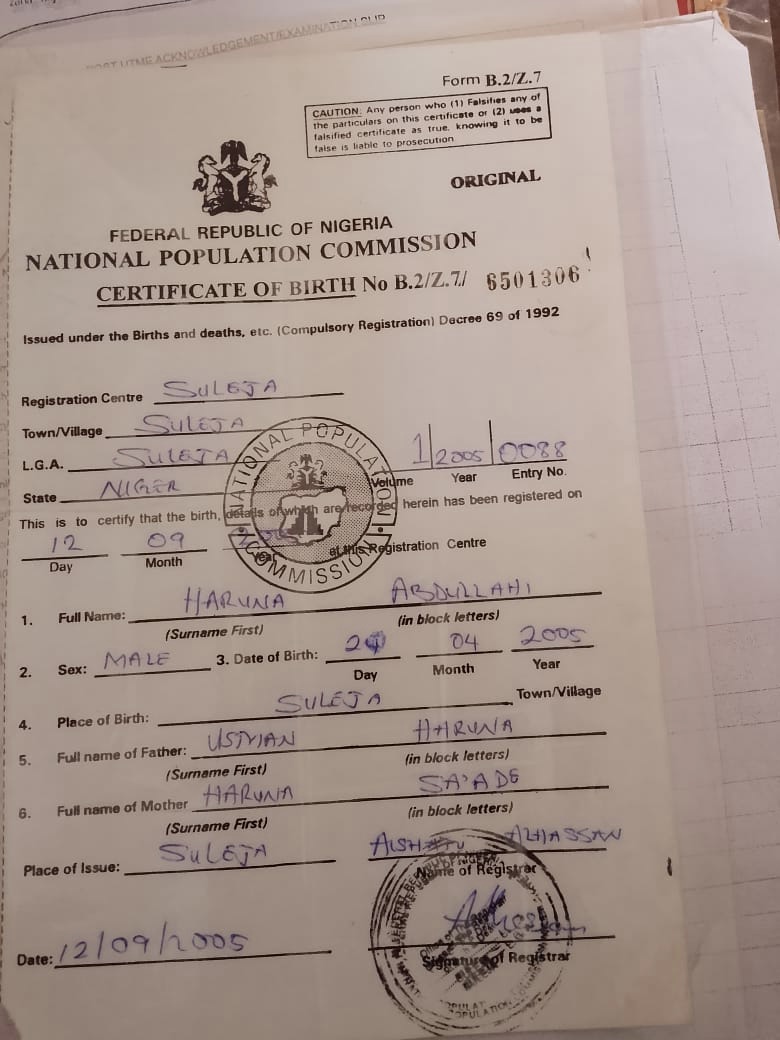 POST UTME ACKNOWLEDGEMENT/EXAMINATION SLIP
Form B.2/Z.7
CAUTION: Any person who (1) Falsifies any of
the particulars on this certificate or (2) uses a
falsified certificate as true, knowing it to be
false is liable to prosecution
ORIGINAL
FEDERAL REPUBLIC OF NIGERIA
NATIONAL POPULATION COMMISSION
CERTIFICATE OF BIRTH No B.2/Z.7/ 6501306
Issued under the Births and deaths, etc. (Compulsory Registration) Decree 69 of 1992
Registration Centre SULEJA
Town/Village SULEJA
L.G.A. SULEJA 1 2005 0088
State NIGER Volume Year Entry No.
NATIONAL POPULATION COMMISSION
This is to certify that the birth, details of which are recorded herein has been registered on
12 09 at this Registration Centre
Day Month Year
1. Full Name: HARUNA ABDULLAHI
(Surname First) (in block letters)
2. Sex: MALE 3. Date of Birth: 04 2005
Day Month Year
4. Place of Birth: SULEJA Town/Village
5. Full name of Father: USMAN HARUNA
(Surname First) (in block letters)
6. Full name of Mother HARUNA SA'ADE
(Surname First) (in block letters)
Place of Issue: SULEJA AISHATU ALHASSAN
Name of Registrar
Date: 12/09/2005
Signature of Registrar